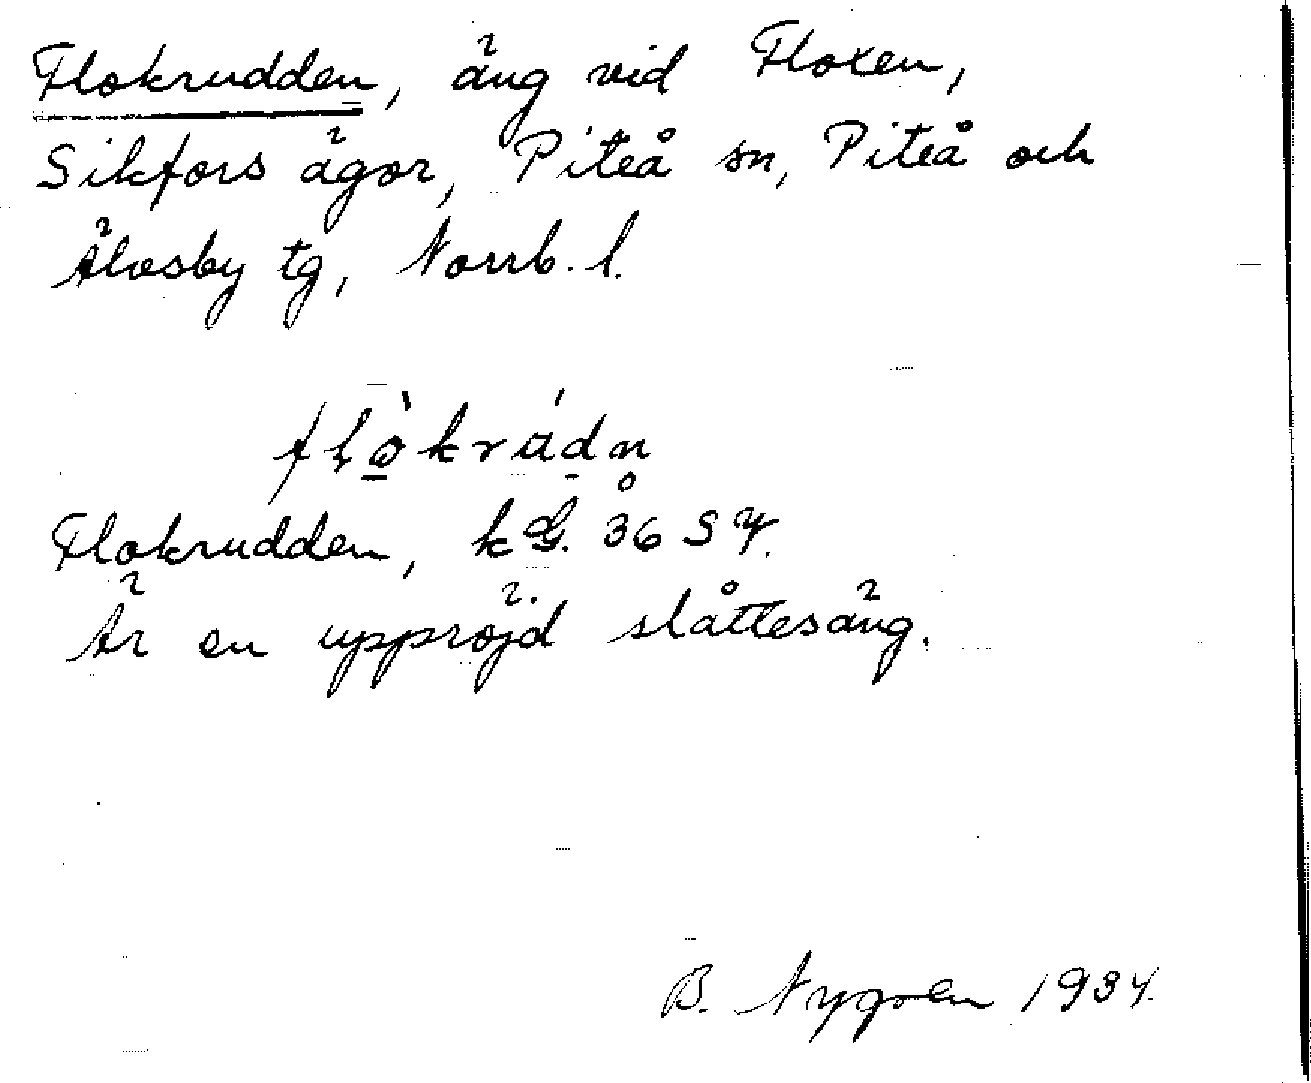 Flokrudden, äng vid Floxen,
Sikfors ägor, Piteå sn, Piteå och
Älvsby tg, Norrb. l.
Flokrudden, kG. 36 S
Är en uppröjd slåttesäng.
B. Nygren 1934.